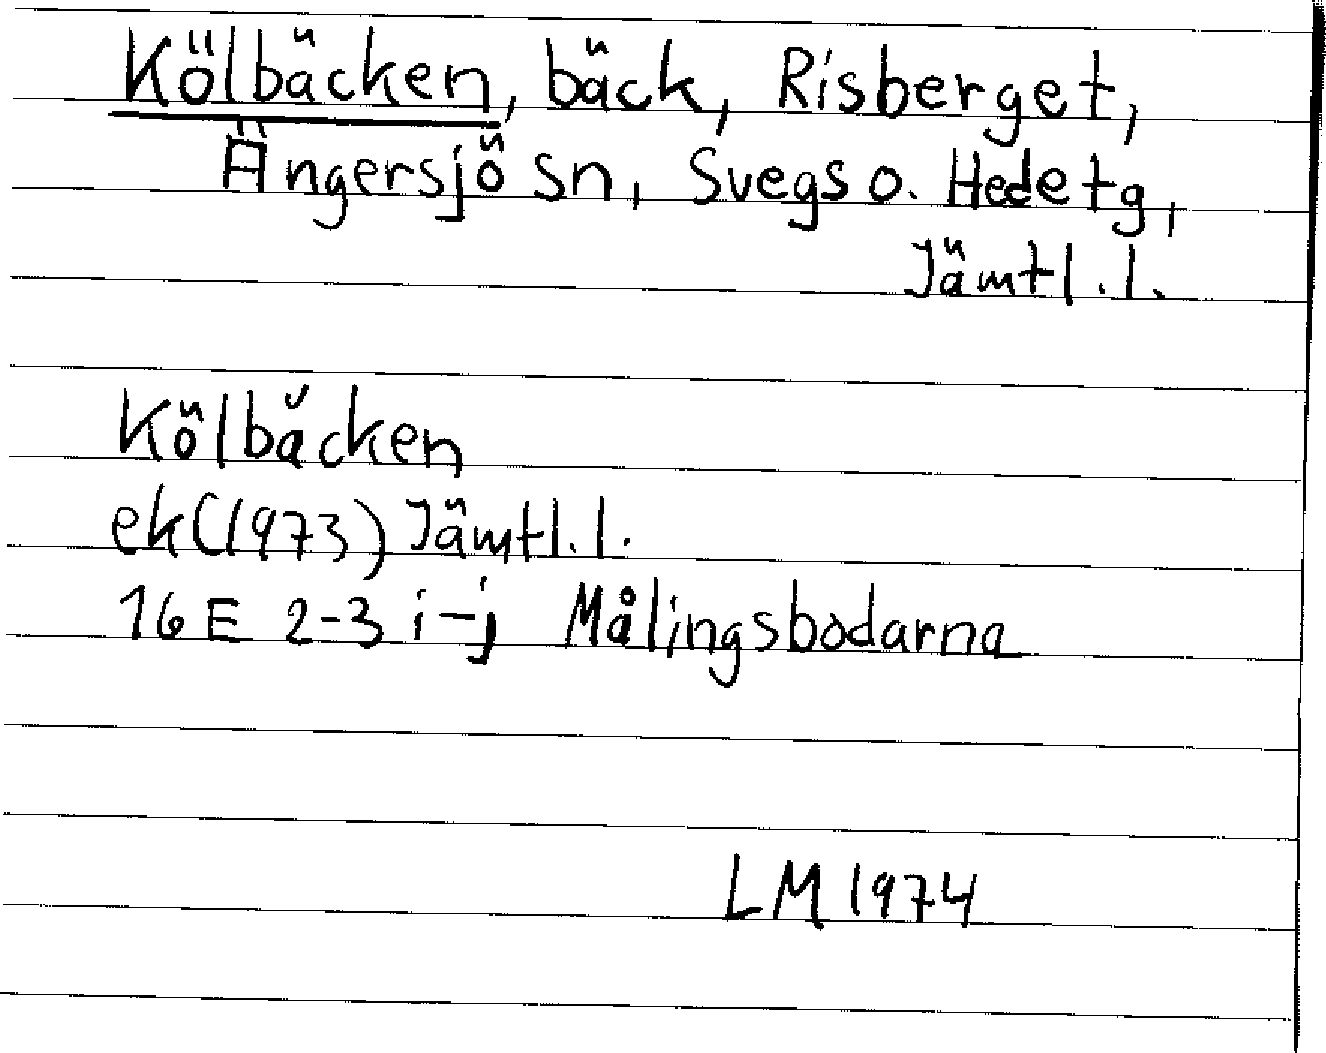 Kölbäcken, bäck, Risberget,
Ängersjö sn, Svegs o. Hede tg,
Jämtl.l.
Kölbäcken
ek (1973) Jämtl.l.
16 E 2-3 i-j Målingsbodarna
LM 1974